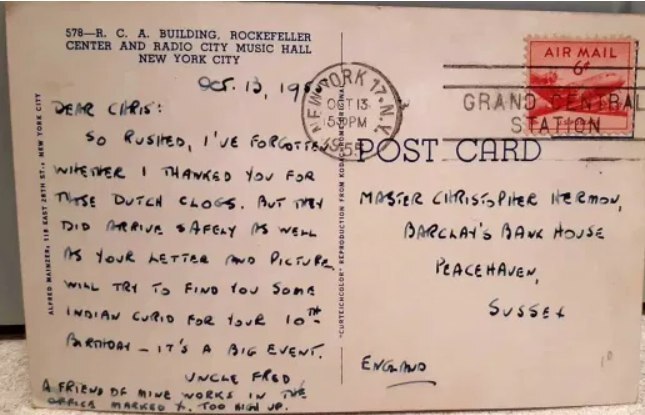 578—R. C. A. BUILDING, ROCKEFELLER
CENTER AND RADIO CITY MUSIC HALL
NEW YORK CITY
OCT. 13, 195
DEAR CHRIS:
SO RUSHED, I'VE FORGOTTEN
WHETHER I THANKED YOU FOR
THOSE DUTCH CLOGS. BUT THEY
DID ARRIVE SAFELY AS WELL
AS YOUR LETTER AND PICTURE.
WILL TRY TO FIND YOU SOME
INDIAN CURIO FOR YOUR 10TH
BIRTHDAY — IT'S A BIG EVENT.
UNCLE FRED
A FRIEND OF MINE WORKS IN THE
OFFICE MARKED X. TOO HIGH UP.
ALFRED MAINZER, 118 EAST 28TH ST., NEW YORK CITY
"CURTEICHCOLOR" REPRODUCTION FROM KODACHROME ORIGINAL
NEW YORK 17, N.Y.
OCT 13
530PM
1955
AIR MAIL
6¢
GRAND CENTRAL
STATION
POST CARD
MASTER CHRISTOPHER HERMON,
BARCLAY'S BANK HOUSE
PEACEHAVEN,
SUSSEX
ENGLAND